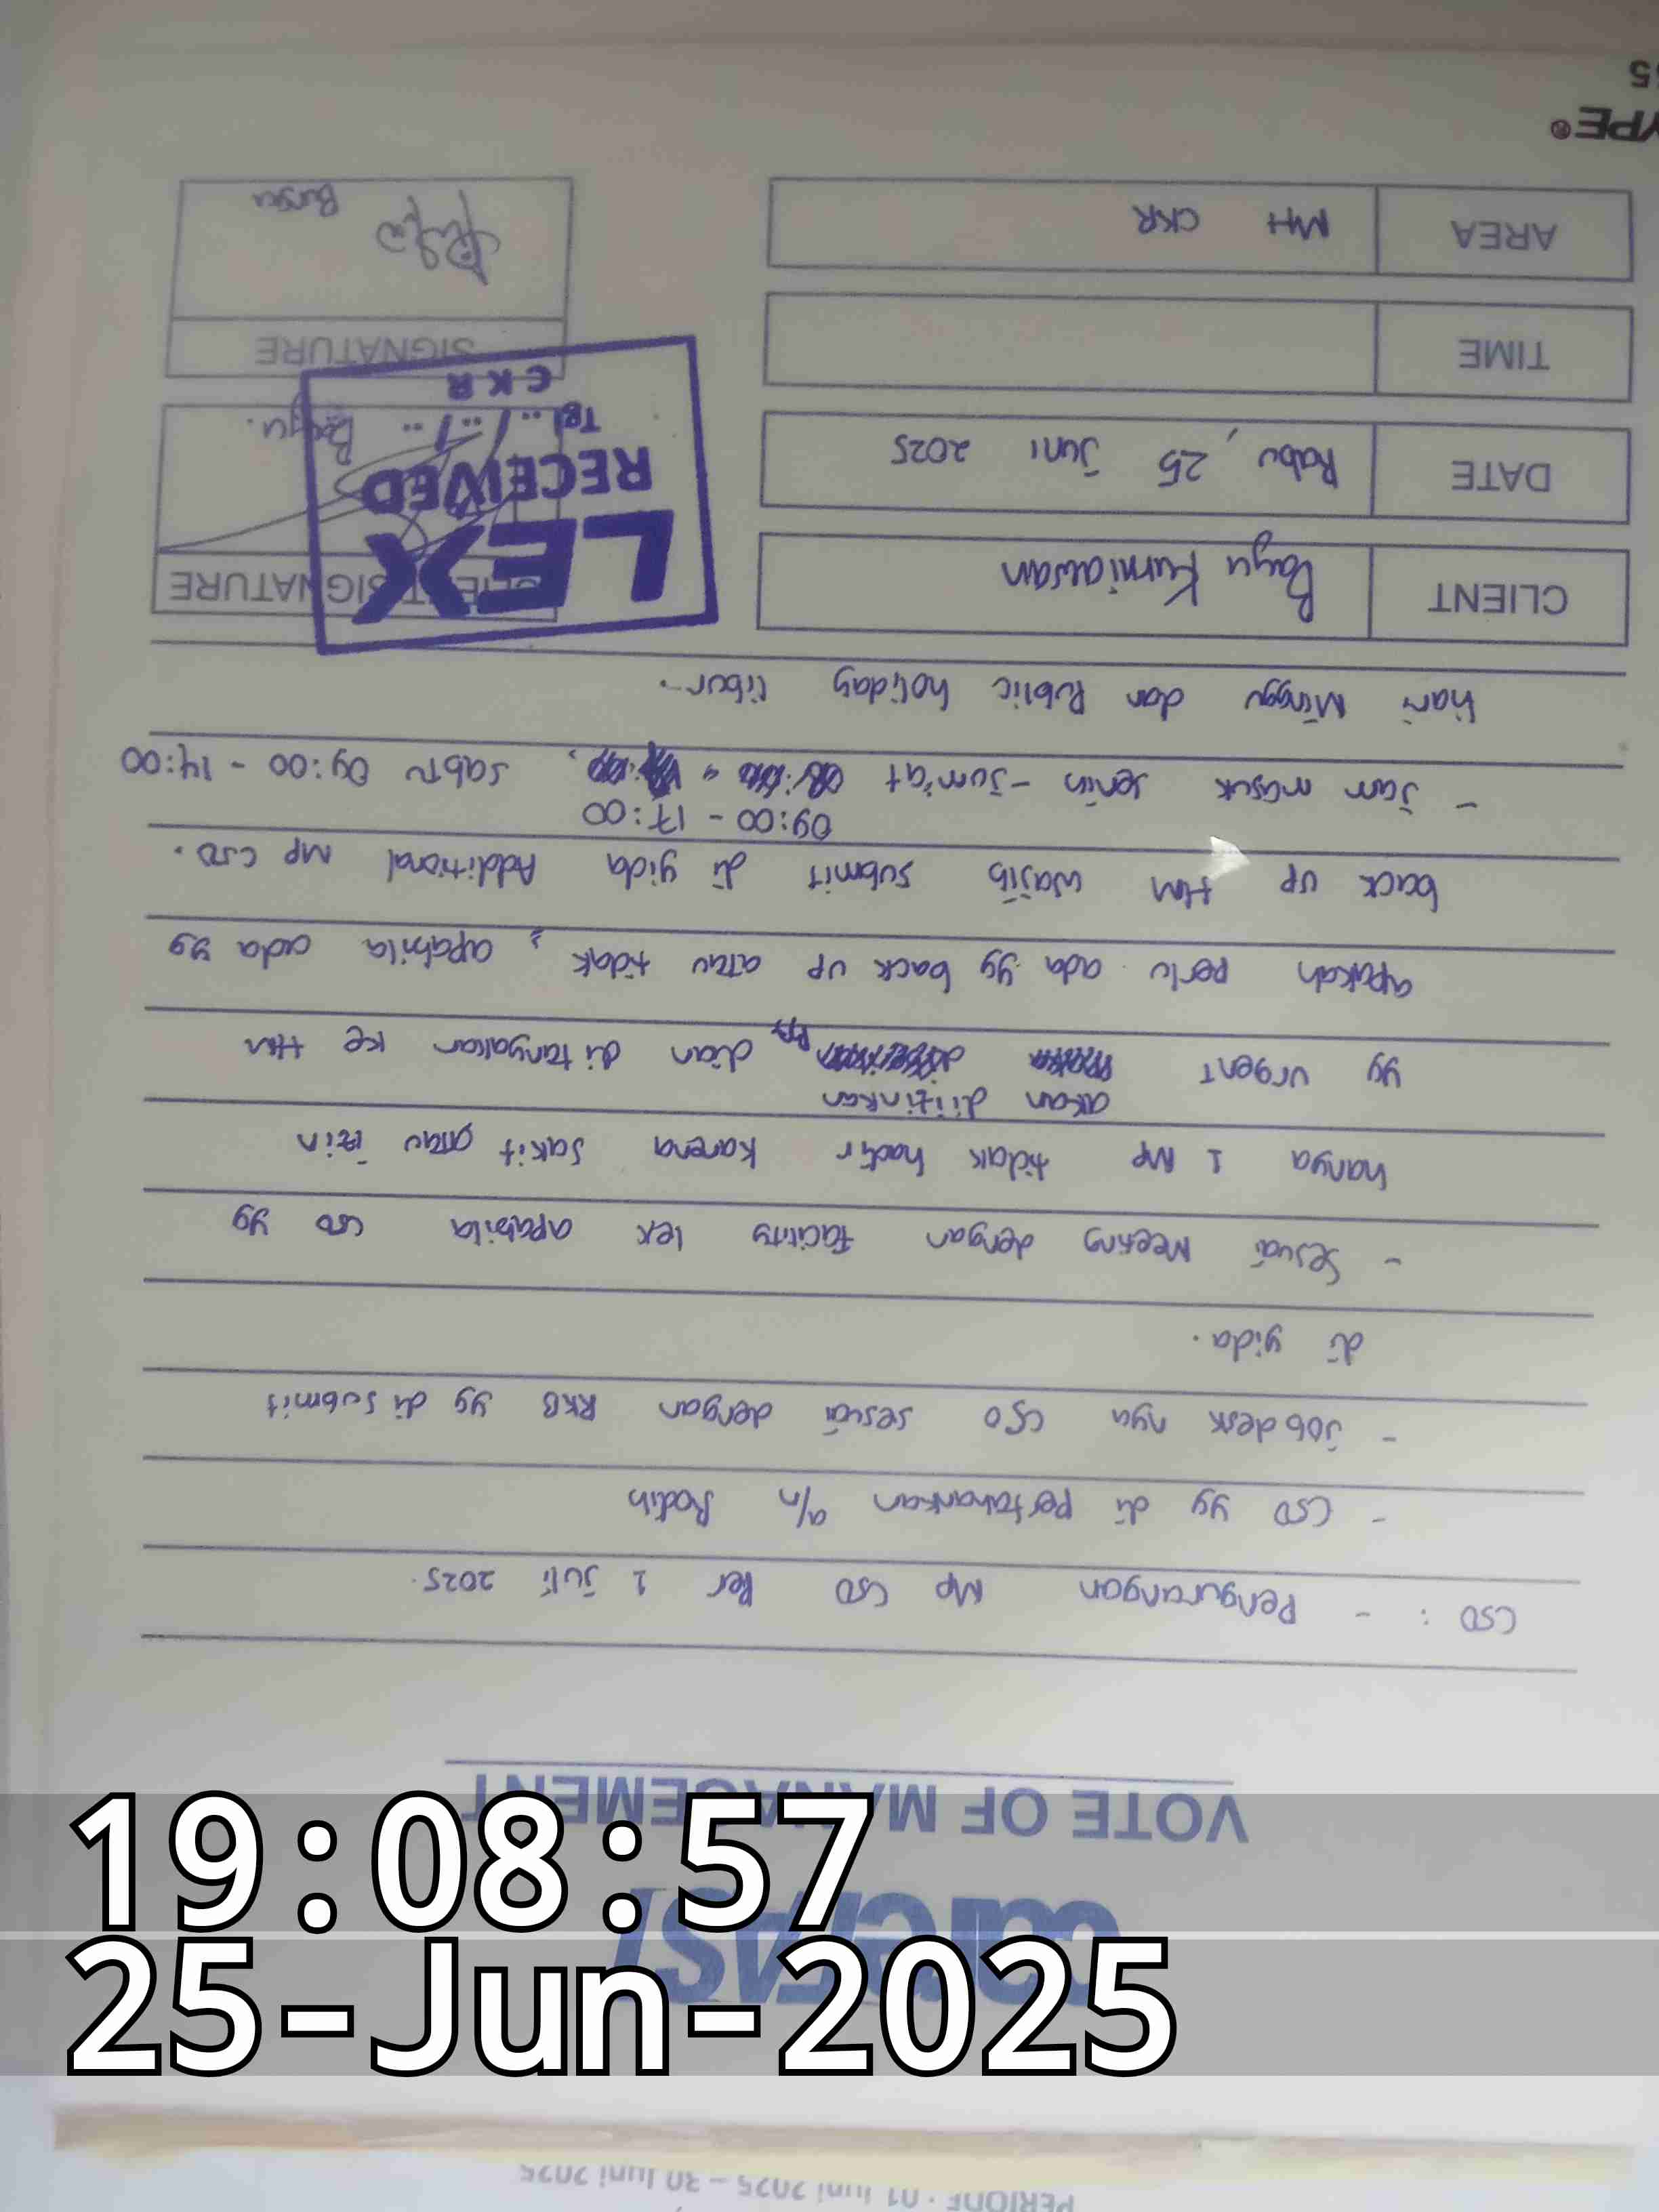 PERIODE : 01 Juni 2025 – 30 Juni 2025
careFAST
VOTE OF MANAGEMENT
CSO : - Pengurangan MP CSO Per 1 Juli 2025.
- CSO yg di pertahankan a/n Rodih
- Jobdesk nya CSO sesuai dengan RKB yg di submit
di yida.
- Sesuai Meeting dengan facility lex apabila CSO yg
hanya 1 MP tidak hadir karena sakit atau izin
akan diizinkan
yg urgent dian di tanyakan ke HM
apakah perlu ada yg back up atau tidak, apabila ada yg
back up HM wajib submit di yida Additional MP CSO.
09:00 - 17:00
- Jam masuk senin - Jum'at , sabtu 09:00 - 14:00
hari Minggu dan Public holiday libur.
CLIENT Bayu Kurniawan
DATE Rabu, 25 Juni 2025
TIME
AREA MH CKR
CLIENT SIGNATURE
Bayu.
LEX
RECEIVED
Tgl ../../..
CKR
SIGNATURE
YPE®
55
19:08:57
25-Jun-2025